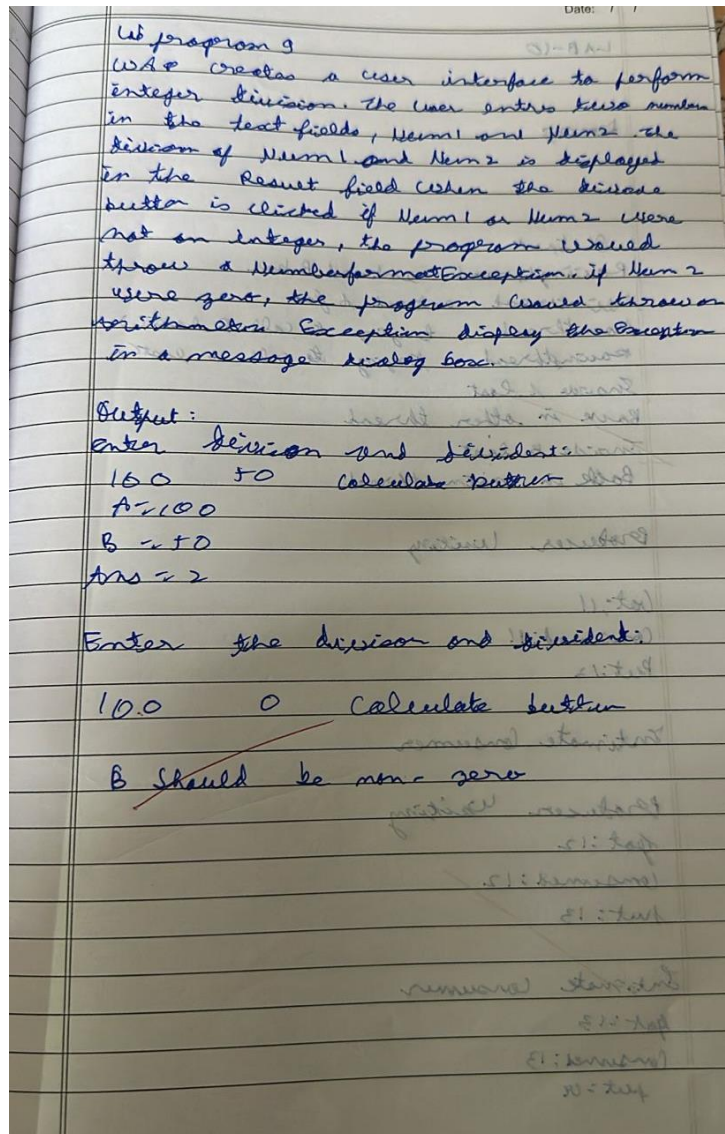 Date: / /
Lab program 9
WAP creates a user interface to perform
integer division. The user entres two numbers
in the text fields, Num1 and Num2. The
division of Num1 and Num2 is displayed
in the Result field when the divide
button is clicked if Num1 or Num2 were
not an integer, the program would
throw a NumberformatException. if Num2
were zero, the program would throw an
Arithmetic Exception display the Exception
in a message dialog box.
Output:
enter division and divident:
100 50 Calculate button
A = 100
B = 50
Ans = 2
Enter the division and divident:
100 0 Calculate button
B Should be non-zero